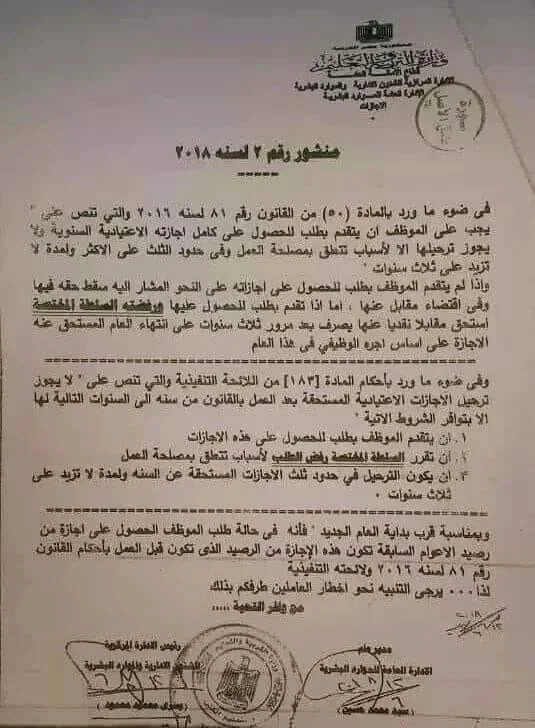 جمهورية مصر العربية
وزارة التربية والتعليم
قطاع الأمانة العامة
الإدارة المركزية للشئون الادارية والموارد البشرية
الإدارة العامة للموارد البشرية
الاجازات
صورة
طبق الأصل
منشور رقم ٢ لسنه ٢٠١٨
فى ضوء ما ورد بالمادة (٥٠) من القانون رقم ٨١ لسنه ٢٠١٦ والتي تنص علي "
يجب على الموظف ان يتقدم بطلب للحصول على كامل اجازته الاعتيادية السنوية ولا
يجوز ترحيلها الا لأسباب تتعلق بمصلحة العمل وفى حدود الثلث على الاكثر ولمدة لا
تزيد على ثلاث سنوات "
وإذا لم يتقدم الموظف بطلب للحصول على اجازاته على النحو المشار اليه سقط حقه فيها
وفى اقتضاء مقابل عنها ، اما اذا تقدم بطلب للحصول عليها ورفضته السلطة المختصة
استحق مقابلا نقديا عنها يصرف بعد مرور ثلاث سنوات على انتهاء العام المستحق عنه
الاجازة على اساس اجره الوظيفي فى هذا العام
وفى ضوء ما ورد بأحكام المادة [١٨٣] من اللائحة التنفيذية والتي تنص على " لا يجوز
ترحيل الاجازات الاعتيادية المستحقة بعد العمل بالقانون من سنه الى السنوات التالية لها
الا بتوافر الشروط الاتية "
١. ان يتقدم الموظف بطلب للحصول على هذه الاجازات
٢. ان تقرر السلطة المختصة رفض الطلب لأسباب تتعلق بمصلحة العمل
٣. ان يكون الترحيل في حدود ثلث الاجازات المستحقة عن السنه ولمدة لا تزيد على
ثلاث سنوات .
وبمناسبة قرب بداية العام الجديد " فأنه فى حالة طلب الموظف الحصول على اجازة من
رصيد الاعوام السابقة تكون هذه الإجازة من الرصيد الذى تكون قبل العمل بأحكام القانون
رقم ٨١ لسنه ٢٠١٦ ولائحته التنفيذية
لذا ... يرجى التنبيه نحو اخطار العاملين طرفكم بذلك
مع وافر التحية .....
مدير عام
الادارة العامة للموارد البشرية
(سيد محمد حسين)
رئيس الادارة المركزية
للشئون الادارية والموارد البشرية
(يسرى محمود محمود)